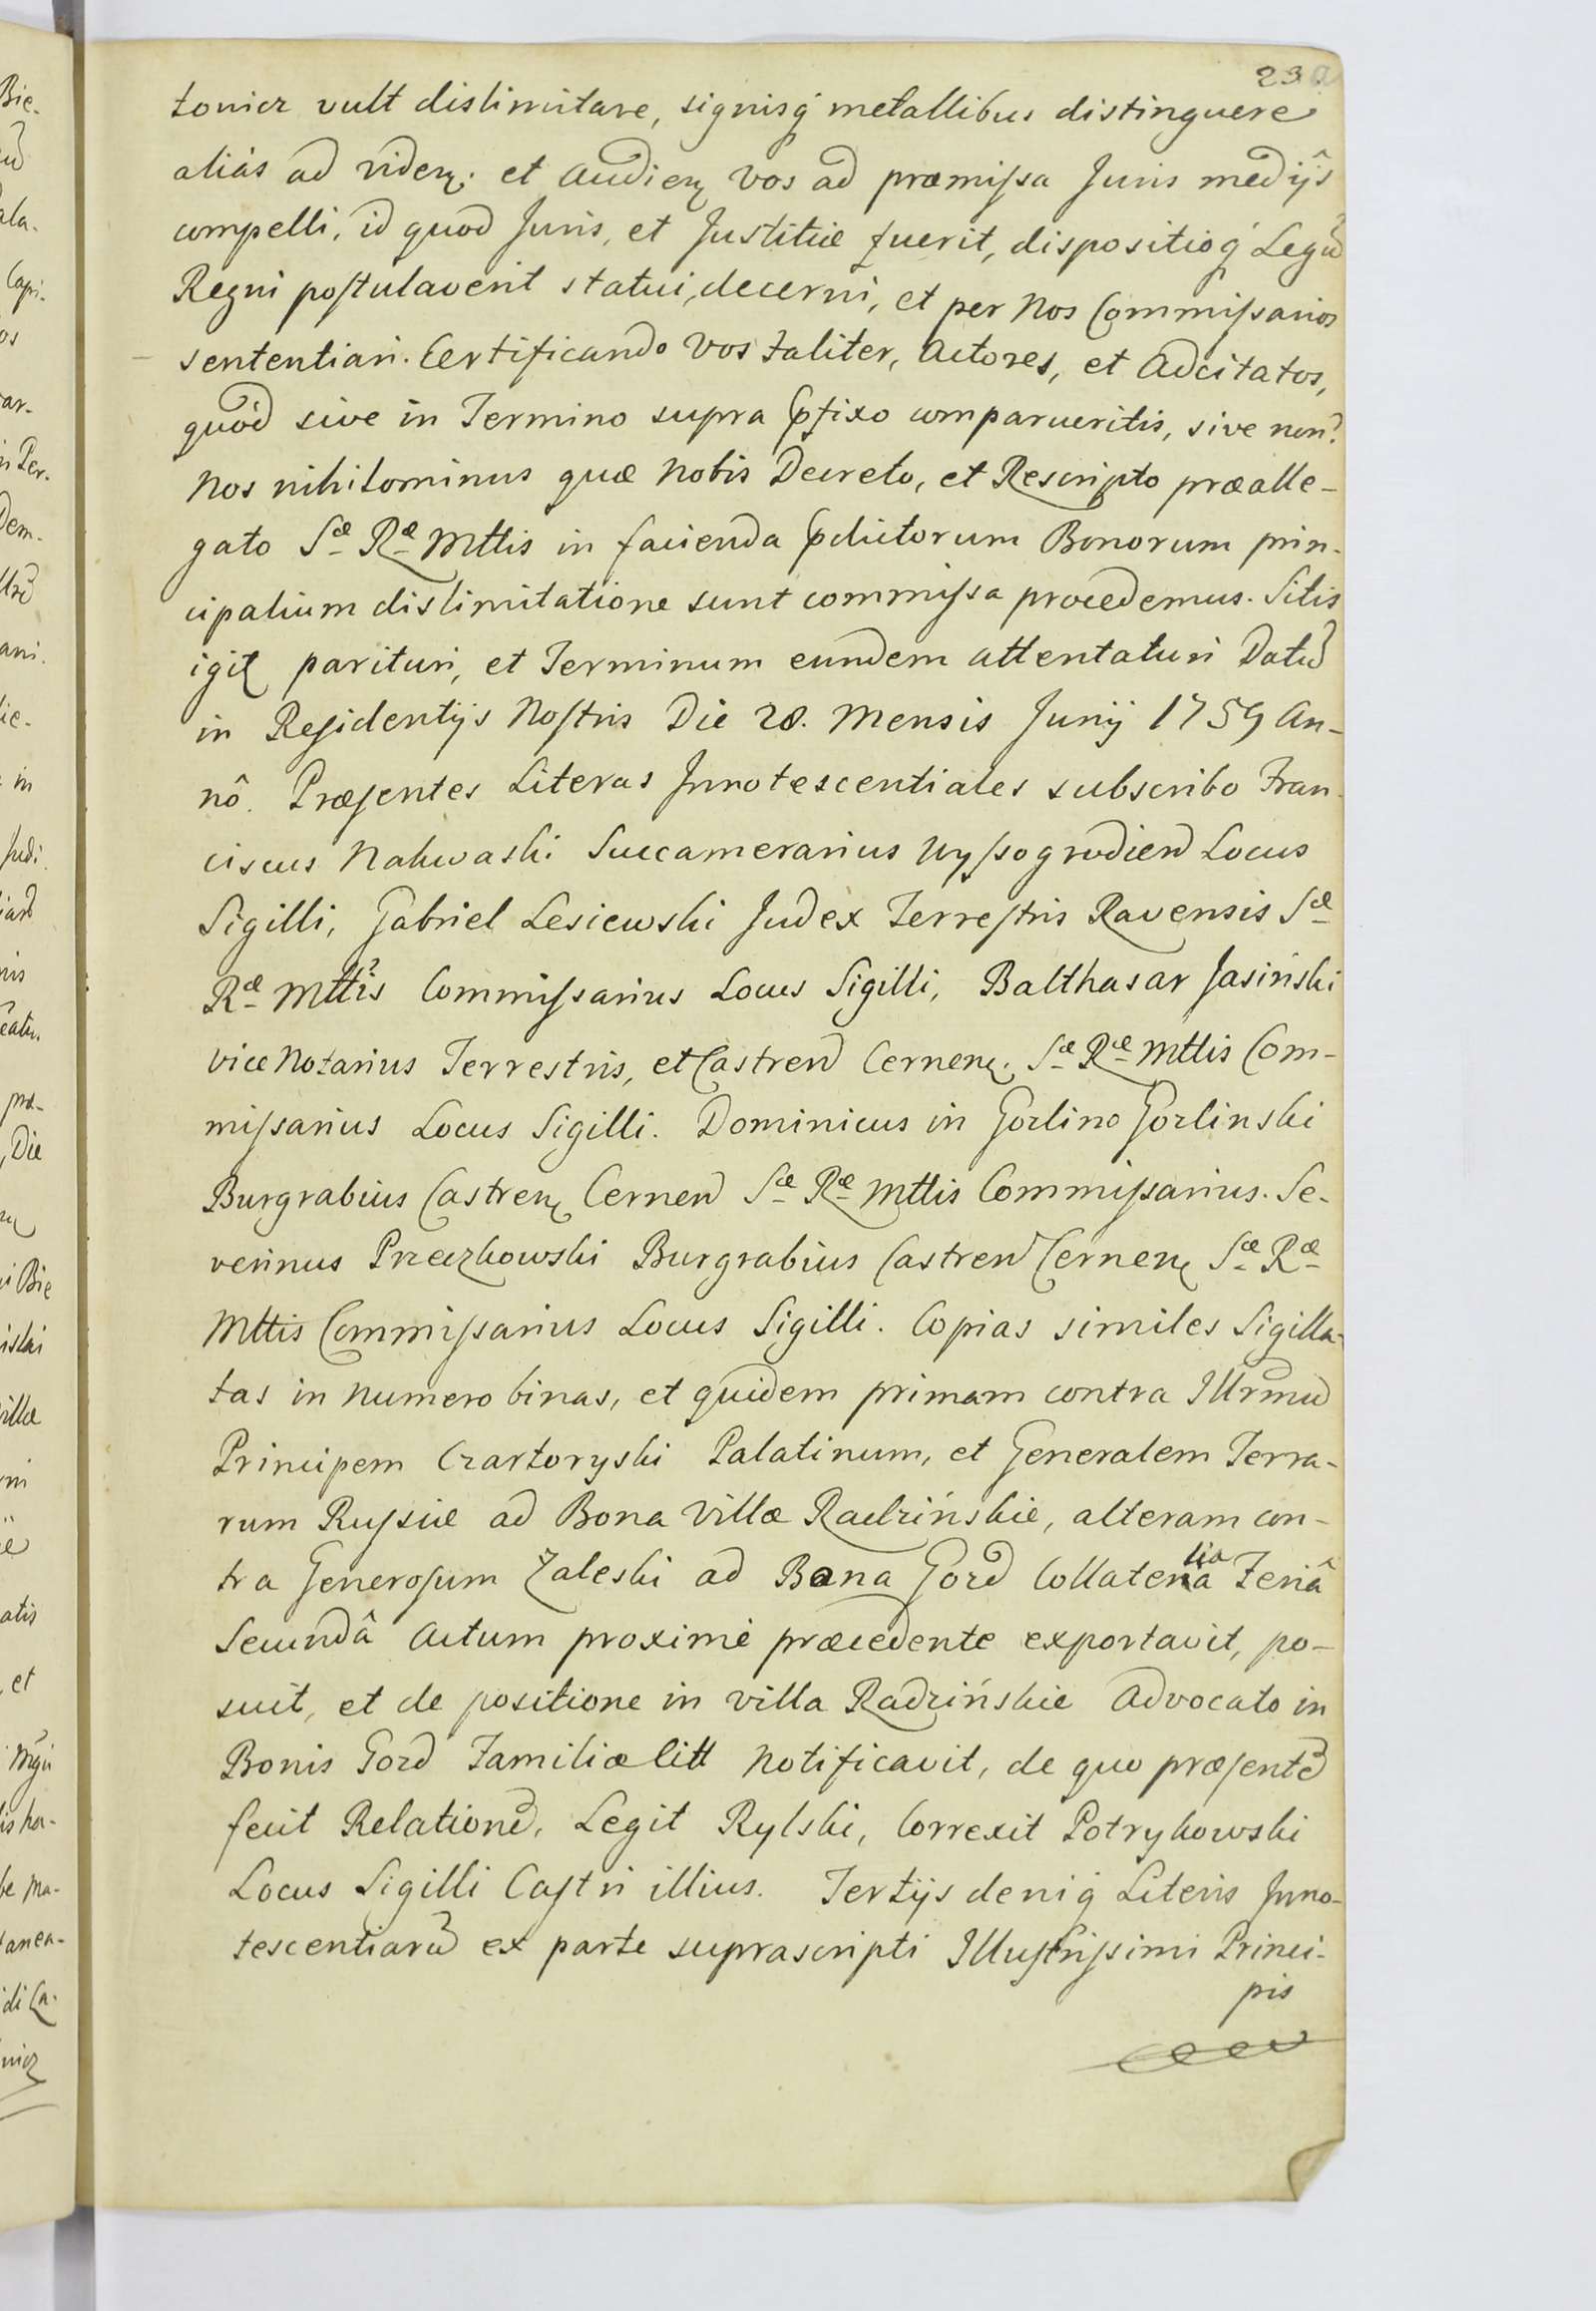 239
tonicz vult dislimitare, signisq́ metallibus distinguere
aliàs ad viden: et audien vos ad præmissa Juris medijs
compelli, id quod Juris, et Justitiæ fuerit, dispositioq́ Legũ
Regni postulaverit statui, decerni, et per Nos Commissarios
sententiari. Certificando Vos taliter, Actores, et Adcitatos,
quòd sive in Termino supra pfixo comparueritis, sive non.
Nos nihilominus quæ Nobis Decreto, et Rescripto præalle-
gato Sæ Ræ Mttis in facienda pdictorum Bonorum prin-
cipalium dislimitatione sunt commissa procedemus. Sitis
igit parituri, et Terminum eundem attentaturi Datũ
in Residentijs Nostris Die 28. Mensis Junij 1759 An-
nô. Præsentes Literas Innotescentiales subscribo Fran-
ciscus Nakwaski Succamerarius Wyssogrodien Locus
Sigilli, Gabriel Lesiewski Judex Terrestris Ravensis Sæ
Ræ Mttis Commissarius Locus Sigilli, Balthasar Jasiński
vice Notarius Terrestris, et Castren Cernen. Sæ Ræ Mttis Com-
missarius Locus Sigilli. Dominicus in Gorlino Gorlinski
Burgrabius Castren Cernen Sæ Ræ Mttis Commissarius. Se-
verinus Przeczkowski Burgrabius Castren Cernen Sæ Ræ
Mttis Commissarius Locus Sigilli. Copias similes Sigilla-
tas in numero binas, et quidem primam contra Illrmũ
Principem Czartoryski Palatinum, et Generalem Terra-
rum Russiæ ad Bona Villæ Radzińskie, alteram con-
tra Generosum Zaleski ad Bona Gozd Collateralia Feriâ
Secundâ Actum proximè præcedente exportavit, po-
suit, et de positione in villa Radzińskie Advocato in
Bonis Gozd Familiæ litt notificavit, de quo præsentẽ
fecit Relationẽ, Legit Rylski, Correxit Potrykowski
Locus Sigilli Castri illius. Tertijs deniq́ Literis Inno-
tescentiarũ ex parte suprascripti Illustrissimi Princi-
pis